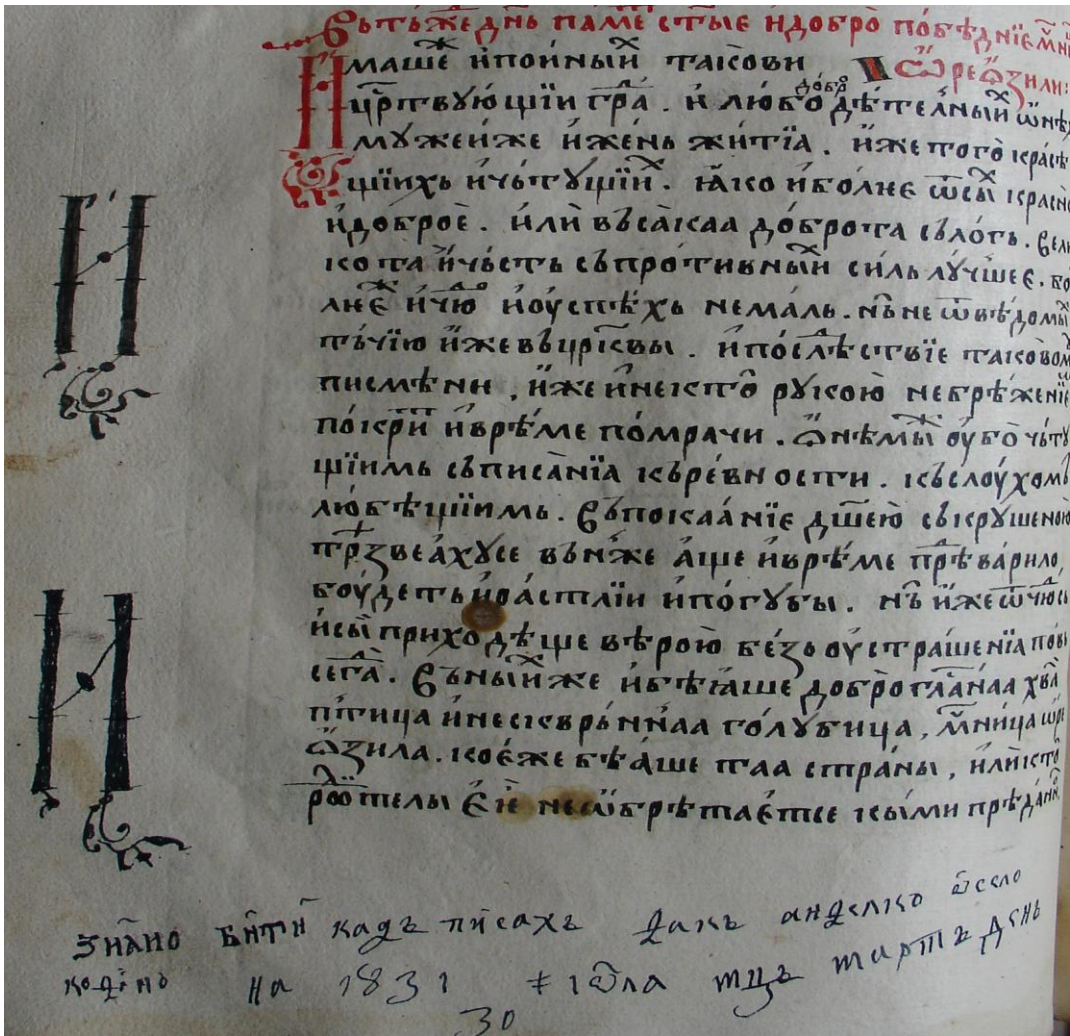 Въ тъже днь паме стые и добро побѣдніе
Имаше и пѡиный такови
црствующіи гра. и любодѣтелный
муже иже и жень житїа. иже того
щїихь и чьтущіи. ꙗко и болше ѿ сы
и доброе. или въсакаа доброта сълогъ. Вели
кота и чьсть съпротивный силь лучшее. бо
лше и чю и оуспѣхь немаль. нъ не ѿ вѣдомы
тъчїю иже въ црквы. и послѣствїе таковом
писмѣни, иже и некто рукою небрѣженїе
покри и врѣме помрачи. оубо чьту
щїимь съписанїа къ ревности. къ слоухомь
любѣщїимь. Въ покаанїе дшею съкрушеною
въ нже аще и врѣме прѣварило,
боудеть и растлїи и погубы. нъ иже
и сы приходѣще вѣрою безь оустрашенїа
сега. Въ ный же и бѣꙗше доброгланаа хвал
птица и нескврьннаа голубица, мница ѡре
ѡзила. кое же бѣаше таа страны, или кто
родтелы еѥ не ѡбрѣтаетсе кыми прѣданн
знано бити кадъ писахъ дакъ анделко ѿ село
кодимь на 1831 мцъ мартъ день
30